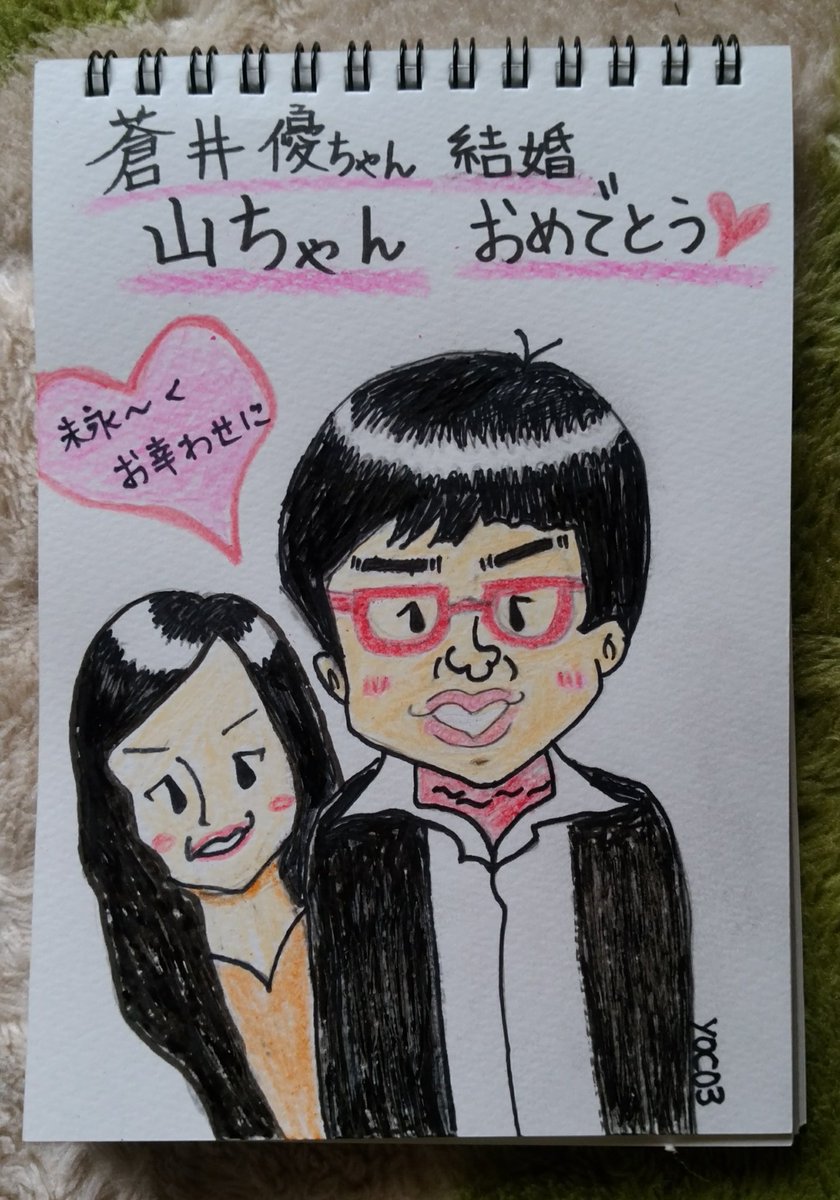 蒼井優ちゃん 結婚
山ちゃん おめでとう
末永〜く
お幸わせに
YOCO3